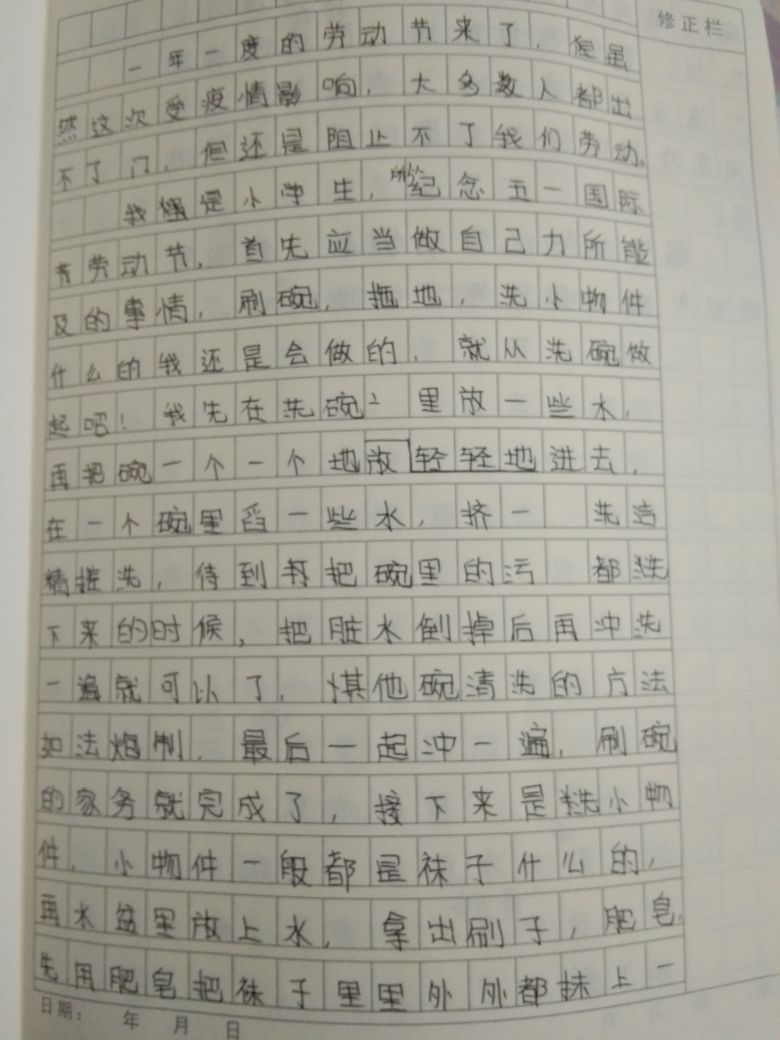 修正栏
一年一度的劳动节来了，但虽
然这次受疫情影响，大多数人都出
不了门，但还是阻止不了我们劳动。
我虽是小学生，纪念五一国际
劳动节，首先应当做自己力所能
及的事情，刷碗，拖地，洗小物件
什么的我还是会做的，就从洗碗做
起吧！我先在洗碗 里放一些水，
再把碗一个一个地放轻轻地进去，
在一个碗里舀一些水，挤一 洗洁
精搓洗，待到 把碗里的污 都洗
下来的时候，把脏水倒掉后再冲洗
一遍就可以了，其他碗清洗的方法
如法炮制，最后一起冲一遍，刷碗
的家务就完成了，接下来是洗小物
件，小物件一般都是袜子什么的，
再水盆里放上水，拿出刷子，肥皂，
先用肥皂把袜子里里外外都抹上一
日期： 年 月 日